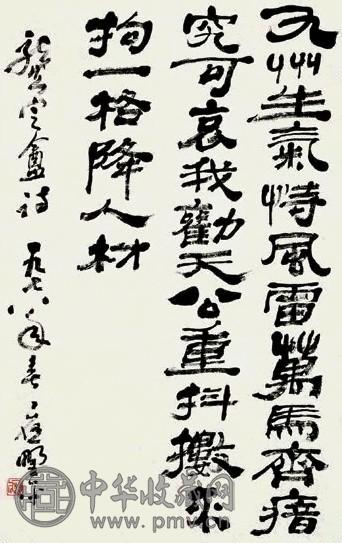 九州生氣恃風雷萬馬齊瘖
究可哀我勸天公重抖擻不
拘一格降人材
龔定盦詩 一九七八年春
中华收藏网
www.pmv.cn